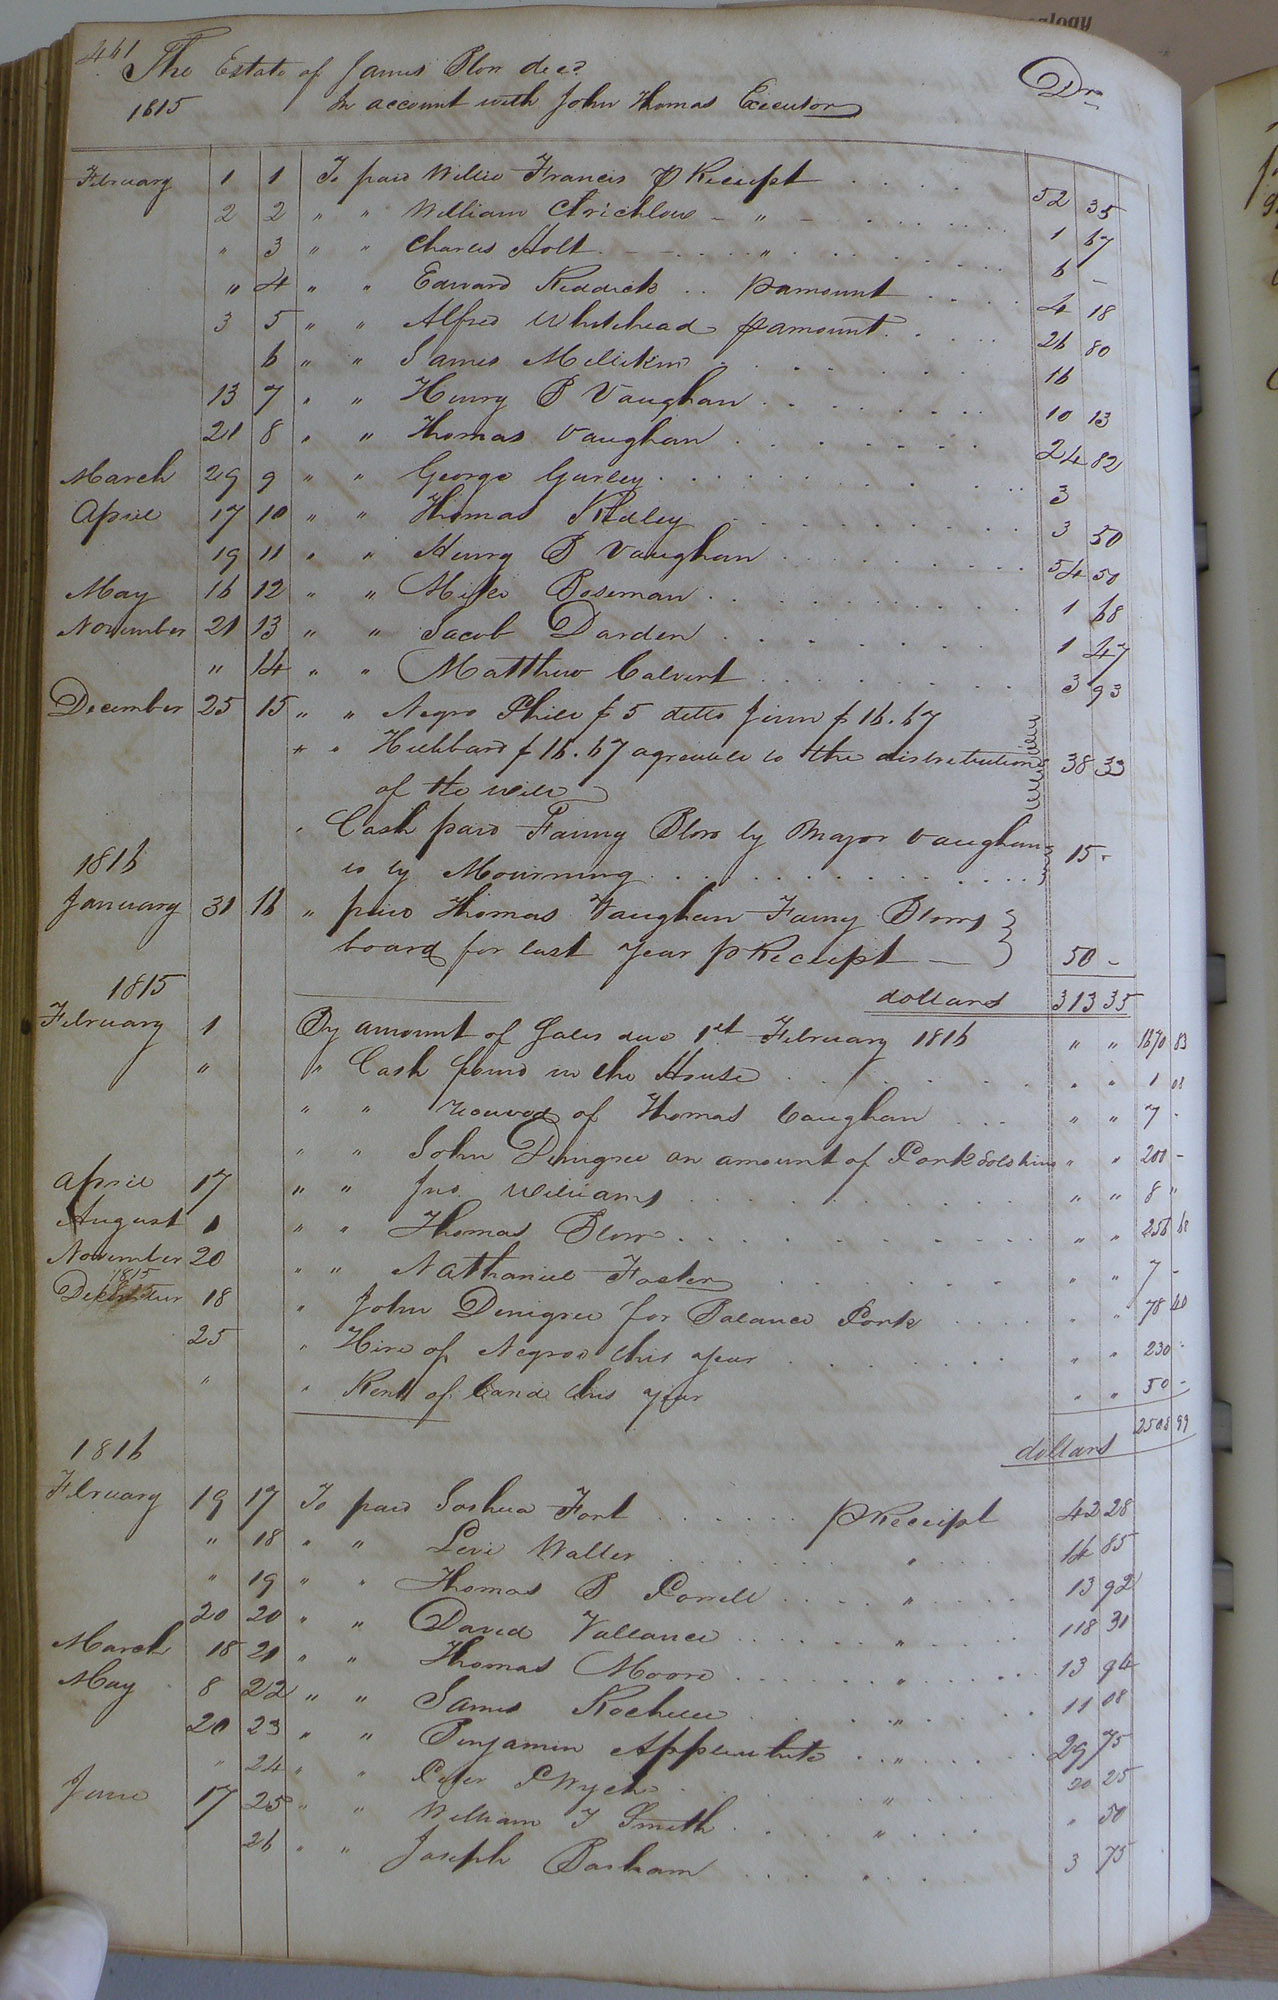 461 The Estate of James Blow decd. Dr
1815 In account with John Thomas Executor
February 1 1 To paid Willie Francis p Receipt 52 35
2 2 " " William Crichlow - " - 1 67
" 3 " " Charles Holt - - " 6 -
" 4 " " Edward Riddick .. p amount 4 18
3 5 " " Alfred Whitehead p amount 26 80
6 " " James Millikin 16
13 7 " " Henry B Vaughan 10 13
21 8 " " Thomas Vaughan 24 82
March 29 9 " " George Gurley 3
April 17 10 " " Thomas Ridley 3 50
19 11 " " Henry B Vaughan 54 50
May 16 12 " " Boseman 1 68
November 21 13 " " Jacob Darden 1 47
" 14 " " Matthew Calvert 3 93
December 25 15 " " Negro Phill $ 5 ditto Jim $ 16.67
" " Hubbard $ 16.67 agreeable to the distribution 38 33
of the will
" Cash paid Fanny Blow by Major Vaughan 15 -
& by Mourning
1816
January 31 16 " paid Thomas Vaughan Fanny Blows
board for last year p Receipt - 50 -
1815 dollars 313 35
February 1 By amount of Sales due 1st February 1816 " " 1670 83
" " Cash found in the House " " 1 08
" " received of Thomas Vaughan " " 7 -
" " John Denigree on amount of Pork sold him " " 200 -
April 17 " " Jno. Williams " " 8 "
August 1 " " Thomas Blow " " 256 68
November 20 " " Nathaniel Foster " " 7 -
1815
December 18 " John Denigree for Balance Pork " " 78 40
25 " Hire of Negroes this year " " 230
" " Rent of Land this year " " 50 -
2508 99
1816 dollars
February 19 17 To paid Joshua Fort p Receipt 42 28
" 18 " " Levi Waller " 14 85
" 19 " " Thomas B " 13 92
20 20 " " David Vallance " 118 31
March 18 21 " " Thomas Moore " 13 94
May 8 22 " " James Rochelle " 11 08
20 23 " " Benjamin Applewhite " 29 75
" 24 " " Peter P Wyche " 20 25
June 17 25 " " William T Smith " " 50
26 " " Joseph Barham " 3 75